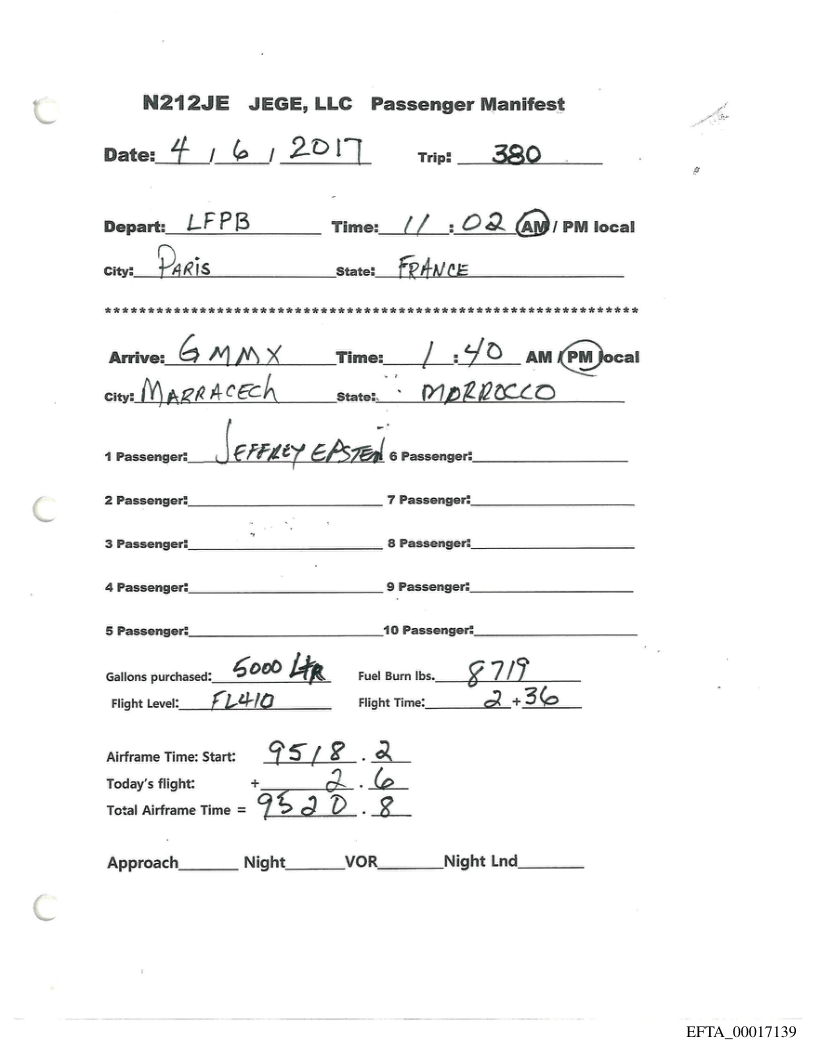 N212JE JEGE, LLC Passenger Manifest
Date: 4 / 6 / 2017 Trip: 380
Depart: LFPB Time: 11 : 02 AM / PM local
City: PARIS State: FRANCE
**************************************************************
Arrive: GMMX Time: 1 : 40 AM / PM local
City: MARRACECH State: MORROCCO
1 Passenger: JEFFREY EPSTEIN 6 Passenger:
2 Passenger: 7 Passenger:
3 Passenger: 8 Passenger:
4 Passenger: 9 Passenger:
5 Passenger: 10 Passenger:
Gallons purchased: 5000 LTR Fuel Burn lbs. 8719
Flight Level: FL410 Flight Time: 2 + 36
Airframe Time: Start: 9518 . 2
Today's flight: + 2 . 6
Total Airframe Time = 9520 . 8
Approach Night VOR Night Lnd
EFTA_00017139